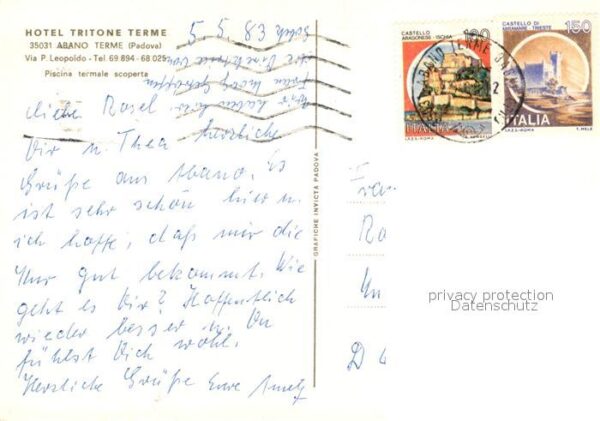 HOTEL TRITONE TERME
35031 ABANO TERME (Padova)
Via P. Leopoldo - Tel. 69.894 - 68.025
Piscina termale scoperta
5.5.83
Liebe Rosel
Dir u. Thea herzliche
Grüße aus Abano. Es
ist sehr schön hier u.
ich hoffe, daß mir die
Kur gut bekommt. Wie
geht es Dir? Hoffentlich
wieder besser u. Du
fühlst Dich wohl.
Herzliche Grüße Eure
GRAFICHE INVICTA PADOVA
CASTELLO ARAGONESE - ISCHIA
100
ITALIA
I.P.Z.S. - ROMA
CASTELLO DI MIRAMARE - TRIESTE
150
ITALIA
I.P.Z.S. - ROMA
T. MELE
ABANO TERME
privacy protection
Datenschutz